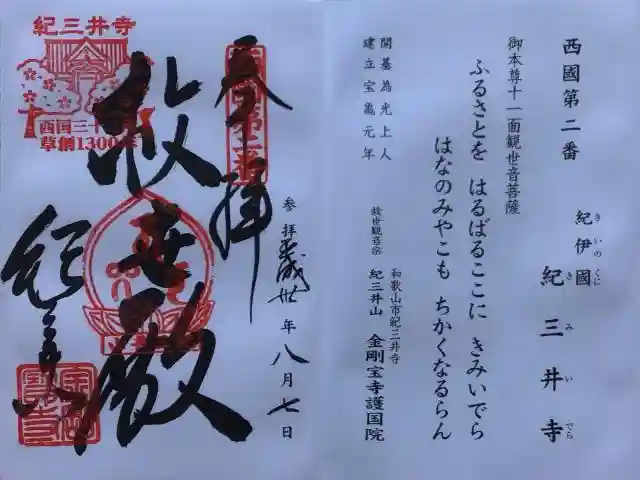 西國第二番
紀伊國
きいのくに
紀三井寺
きみいでら
御本尊十一面観世音菩薩
ふるさとを はるばるここに きみいでら
はなのみやこも ちかくなるらん
開基為光上人
建立宝亀元年
救世観音宗
紀三井山
和歌山市紀三井寺
金剛宝寺護国院
奉拝
西国第二番
参拝 平成卅年八月七日
救世殿
紀三井寺
紀三井寺
西国三十
草創1300年